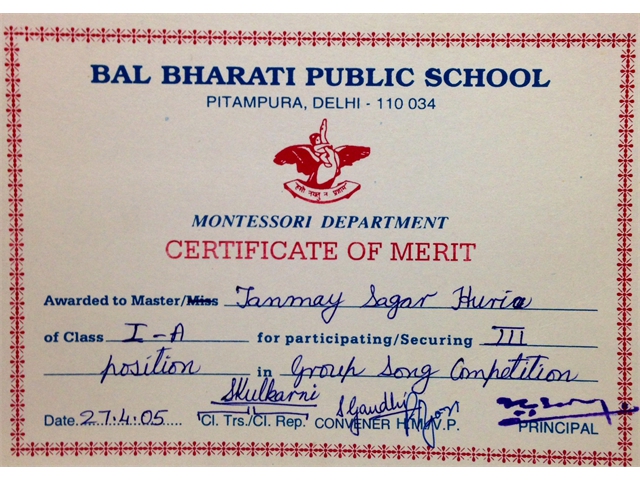 BAL BHARATI PUBLIC SCHOOL
PITAMPURA, DELHI - 110 034
MONTESSORI DEPARTMENT
CERTIFICATE OF MERIT
Awarded to Master/Miss Tanmay Sagar Huria
of Class I-A for participating/Securing III
position in Group Song Competition
SKulkarni SGandhi
Date.27.4.05..... Cl. Trs./Cl. Rep. CONVENER H.M./V.P. PRINCIPAL